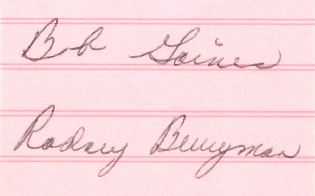 Bob Gaines
Rodney Berryman